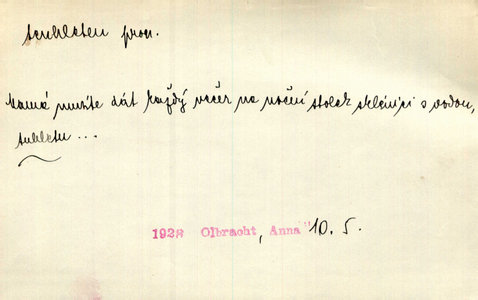 tenhleten pron.
Mamá musíte dát každý večer na noční stolek sklenici s vodou,
tuhletu ...
1928 Olbracht, Anna 10. 5.